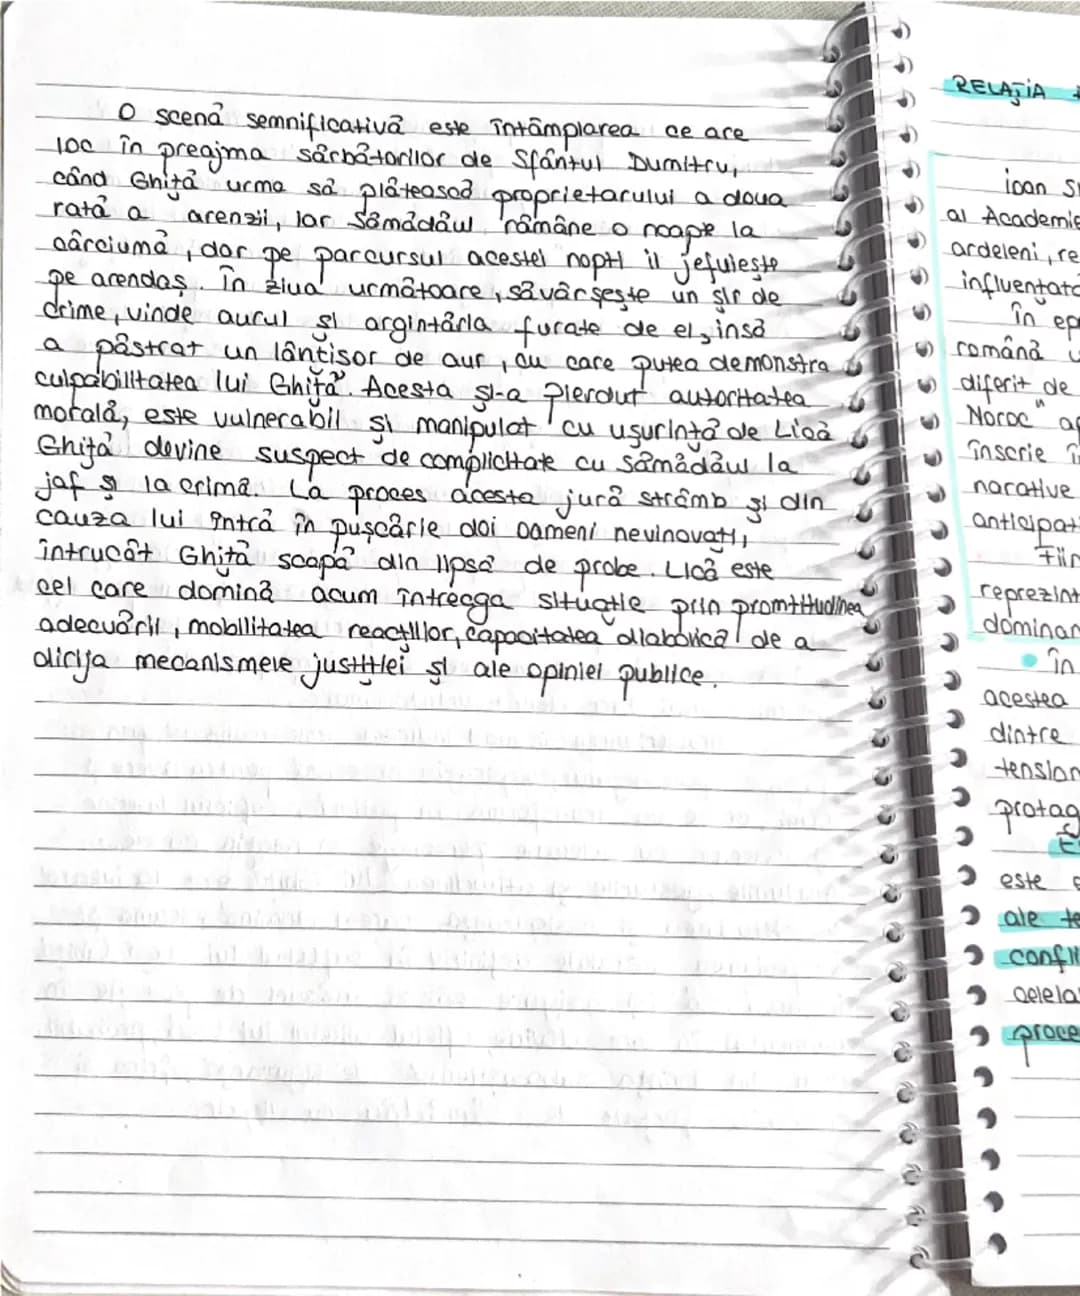 O scenă semnificativă este întâmplarea ce are
loc în preajma sărbătorilor de Sfântul Dumitru,
când Ghiță urma să plătească proprietarului a doua
rată a arenzii, iar Sămădăul rămâne o noapte la
cârciumă, dar pe parcursul acestei nopți îl jefuiește
pe arendaș. În ziua următoare, săvârșește un șir de
crime, vinde aurul și argintăria furate de el, însă
a păstrat un lănțișor de aur, cu care putea demonstra
culpabilitatea lui Ghiță. Acesta și-a pierdut autoritatea
morală, este vulnerabil și manipulat cu ușurință de Lică
Ghiță devine suspect de complicitate cu Sămădău la
jaf și la crimă. La proces acesta jură strâmb și din
cauza lui intră în pușcărie doi oameni nevinovați,
întrucât Ghiță scapă din lipsă de probe. Lică este
cel care domină acum întreaga situație prin promtitudinea
adecuării, mobilitatea reacțiilor, capacitatea diabolică de a
dirija mecanismele justiției și ale opiniei publice.
RELAȚIA
ioan
al Academie
ardeleni, re
influentat
În ep
română
diferit de
Noroc"
înscrie
narative
anticipat
Fiin
reprezint
dominan
• În
acestea
dintre
tension
protag
este
ale te
confli
celela
proce